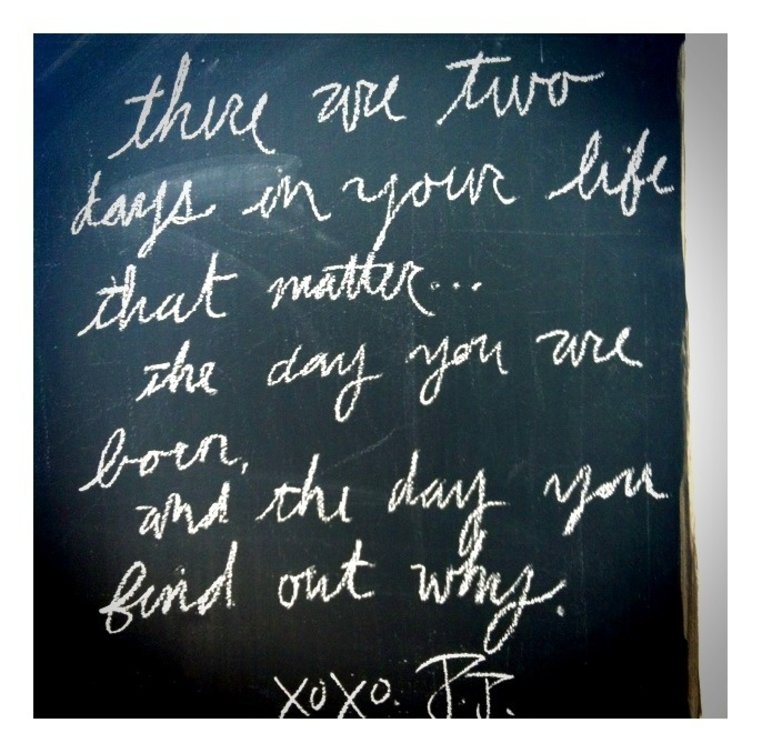 there are two
days in your life
that matter...
the day you are
born,
and the day you
find out why.
xoxo. J.J.